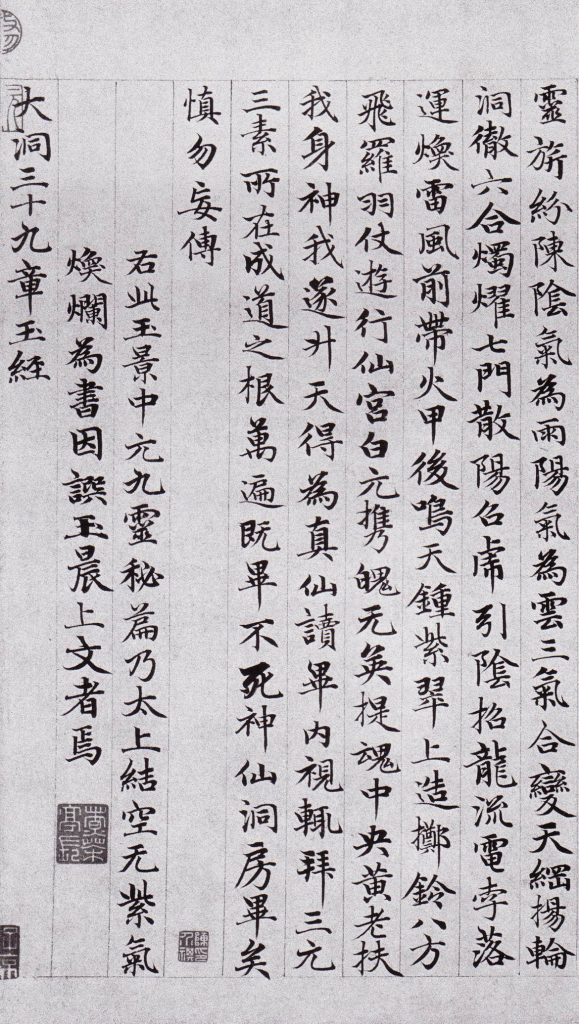 靈旂紛陳陰氣為雨陽氣為雲三氣合變天綱揚輪
洞徹六合燭燿七門散陽召虎引陰招龍流電孛落
運煥雷風前帶火甲後鳴天鍾紫翠上造擲鈴八方
飛羅羽仗遊行仙宮白元攜魄无英提魂中央黃老扶
我身神我遂升天得為真仙讀畢內視輒拜三元
三素所在成道之根萬遍既畢不死神仙洞房畢矣
慎勿妄傳
右此玉景中元九靈秘篇乃太上結空无紫氣
煥爛為書因譔玉晨上文者焉
大洞三十九章玉經